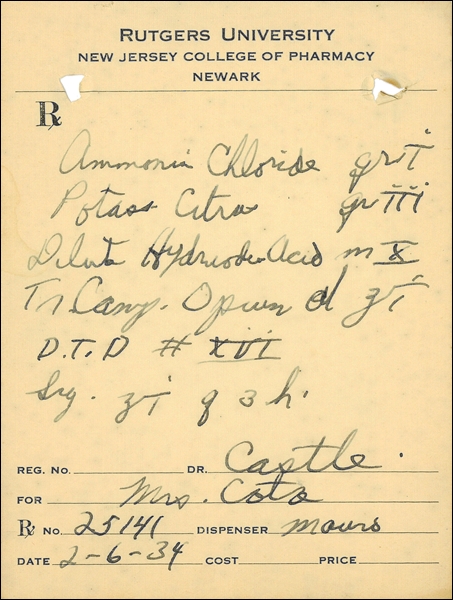 RUTGERS UNIVERSITY
NEW JERSEY COLLEGE OF PHARMACY
NEWARK
℞
Ammonia Chloride gr
Potass Citra gr iii
Dilute Hydriodic Acid m X
Tr. Camp. Opium ʒi
D.T.D # XVI
Sig. ʒi q 3 h.
REG. No. DR. Castle.
FOR Mrs. Cota
℞ No. 25141 DISPENSER Mauro
DATE 2-6-34 COST PRICE